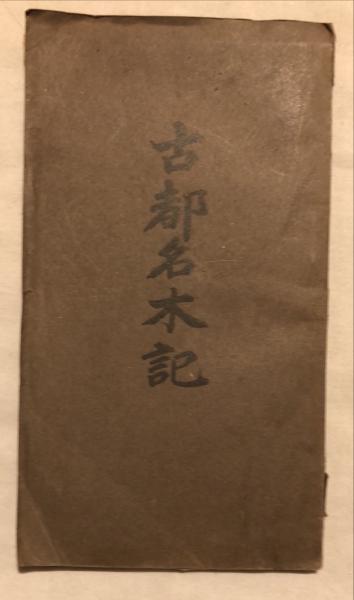 古都名木記